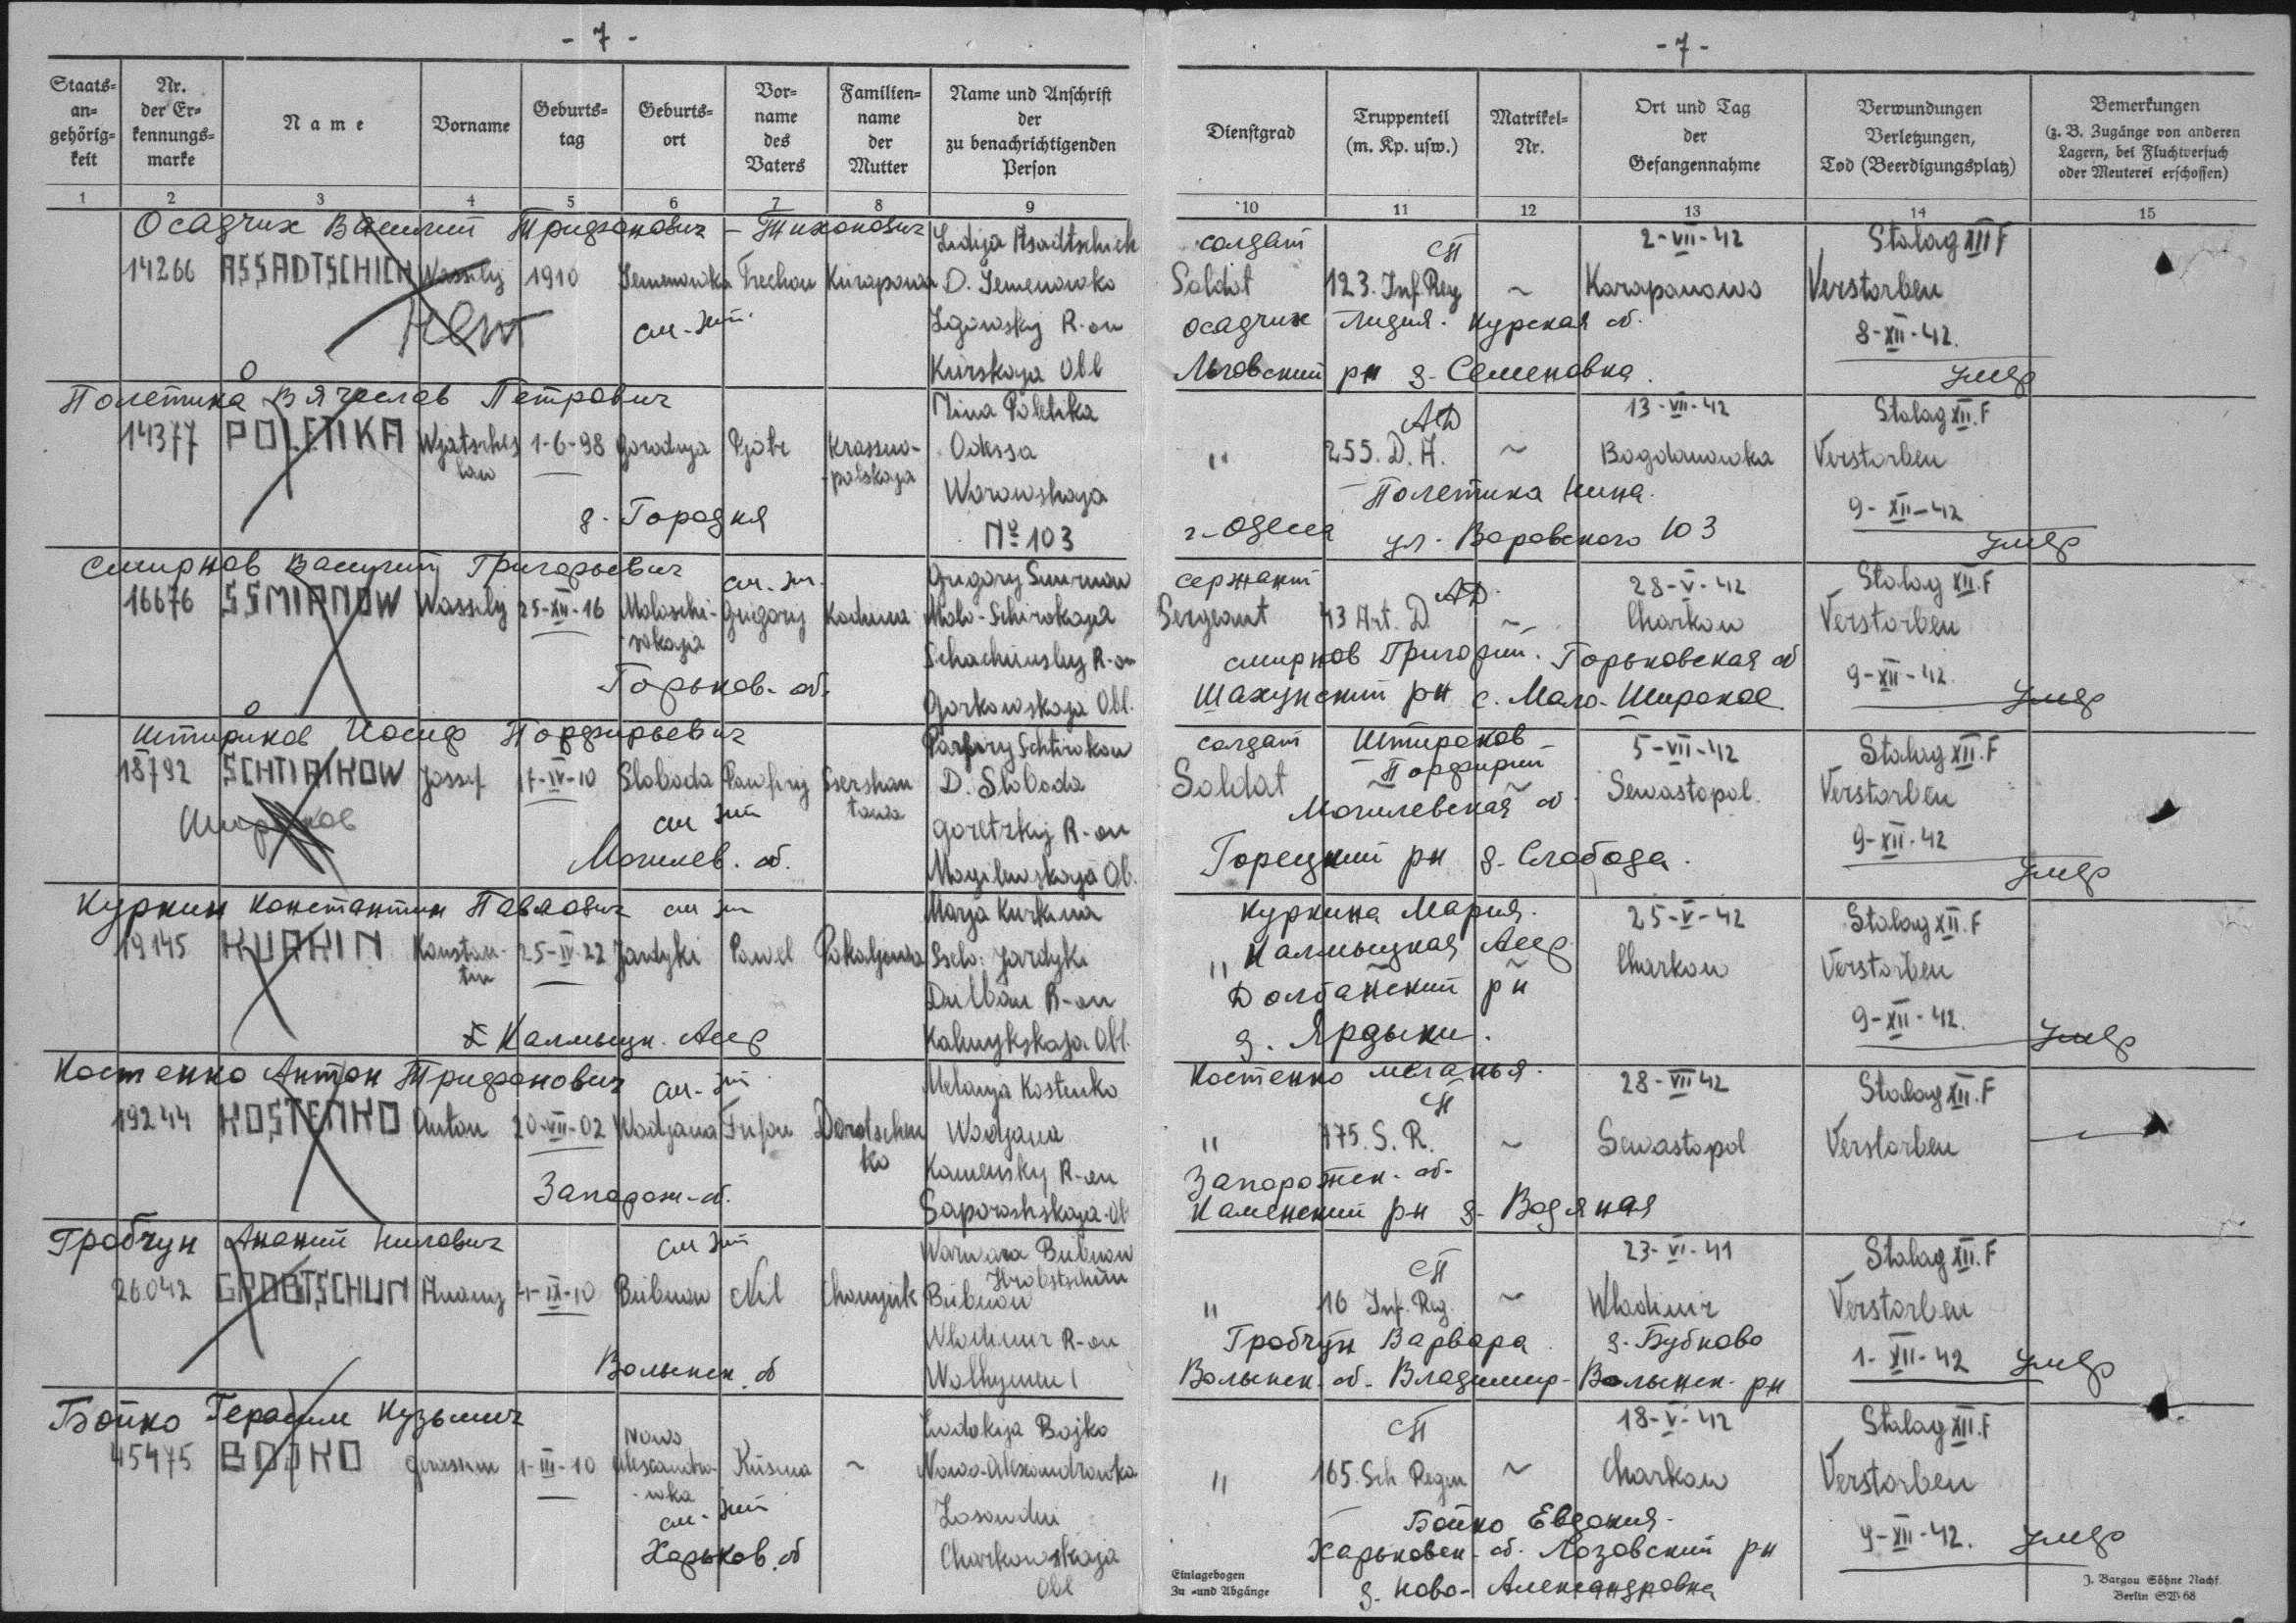 - 7 -
- 7 -
Staats-an-gehörig-keit | Nr. der Er-kennungs-marke | Name | Vorname | Geburts-tag | Geburts-ort | Vor-name des Vaters | Familien-name der Mutter | Name und Anschrift der zu benachrichtigenden Person | Dienstgrad | Truppenteil (m. Kp. usw.) | Matrikel-Nr. | Ort und Tag der Gefangennahme | Verwundungen Verletzungen, Tod (Beerdigungsplatz) | Bemerkungen (z. B. Zugänge von anderen Lagern, bei Fluchtversuch oder Meuterei erschossen)
1 2 3 4 5 6 7 8 9 10 11 12 13 14 15
Осадчих Василий Трифонович - Тихонович Lidija солдат СП 2-VII-42 Stalag XII F
14266 ASSADTSCHICH Wassilij 1910 Semenowka Trechon Kurapowa D. Semenowka Soldat 123. Inf. Reg ~ Karapanowo Verstorben
нет см. жит. Lgowskij R-on осадчих Лидия. Курская об. 8-XII-42.
Kurskaja Obl Льговский рн д. Семеновка. умер
Полетика Вячеслав Петрович Nina Poletika АД 13-VII-42 Stalag XII. F
14377 POLETIKA Wjatscheslaw 1-6-98 Goradnja Pjotr Krassno-polskaja Odessa " 255. D. A. ~ Bogdanowka Verstorben
Worowskaja Полетика Нина. 9-XII-42
д. Городня № 103 г. Одесса ул. Воровского 103 умер
Смирнов Василий Григорьевич см. жит. Grigory Smirnow сержант АД 28-V-42 Stalag XII. F
16676 SSMIRNOW Wassilij 25-XII-16 Maloschi-rokaja Grigorij Kodina Malo-Schirokaja Sergeant 43 Art. D ~ Charkow Verstorben
Schachunskij R-on смирнов Григорий. Горьковская об 9-XII-42.
Горьков. об. Gorkowskaja Obl. Шахунский рн с. Мало-Широкое умер
Штириков Иосиф Порфирьевич Schtirokow солдат Штироков 5-VII-42 Stalag XII. F
18792 SCHTIRIKOW Jossif 17-IV-10 Sloboda D. Sloboda Soldat Порфирий ~ Sewastopol. Verstorben
см жит Goretzkij R-on Могилевская об. 9-XII-42
Могилев. об. Mogilewskaja Ob. Горецкий рн д. Слобода. умер
Куркин Константин Павлович см жит Marja Kurkina Куркина Мария. 25-V-42 Stalag XII. F
19145 KURKIN Konstan-tin 25-IV-22 Jardyki Pawel Sselo: Jardyki " Калмыцкая Асср Charkow Verstorben
R-on Долбанский рн 9-XII-42.
Калмыцк. Асср Kalmykskaja Obl. д. Ярдыки. умер
Костенко Антон Трифонович см. жит Melanja Kostenko Костенко меланья. СП 28-VII 42 Stalag XII. F
19244 KOSTENKO Anton 20-VII-02 Wodjana Trifon Dorotschen ko Wodjana " 775. S. R. ~ Sewastopol Verstorben
Kamensky R-on Запорожск. об.
Запорож. об. Saporoshskaja Ob Каменский рн д. Водяная
Гробчун Ананий Нилович см жит Warwara Bubnow СП 23-VI-41 Stalag XII. F
26042 GROBTSCHUN Ananij 4-IX-10 Bubnow Nil Chomjuk Hrobtschun Bubnow " 16 Inf. Reg. ~ Wladimir Verstorben
Wladimir R-on Гробчун Варвара д. Бубново 1-XII-42 умер
Волынск. об Wolhynien Волынск. об. Владимир-Волынск. рн
Бойко Герасим Кузьмич Bojko СП 18-V-42 Stalag XII. F
45475 BOJKO Gerassim 1-III-10 Nowo Alexandro-wka Kusma ~ Nowo-Alexandrowka " 165. Sch Regm ~ Charkow Verstorben
см. жит Бойко Евдокия. 9-XII-42. умер
Харьков. об Charkowskaja Obl Харьковск. об. Лозовский рн
д. Ново-Александровка
Einlagebogen
Zu- und Abgänge
J. Bargou Söhne Nachf.
Berlin SW 68